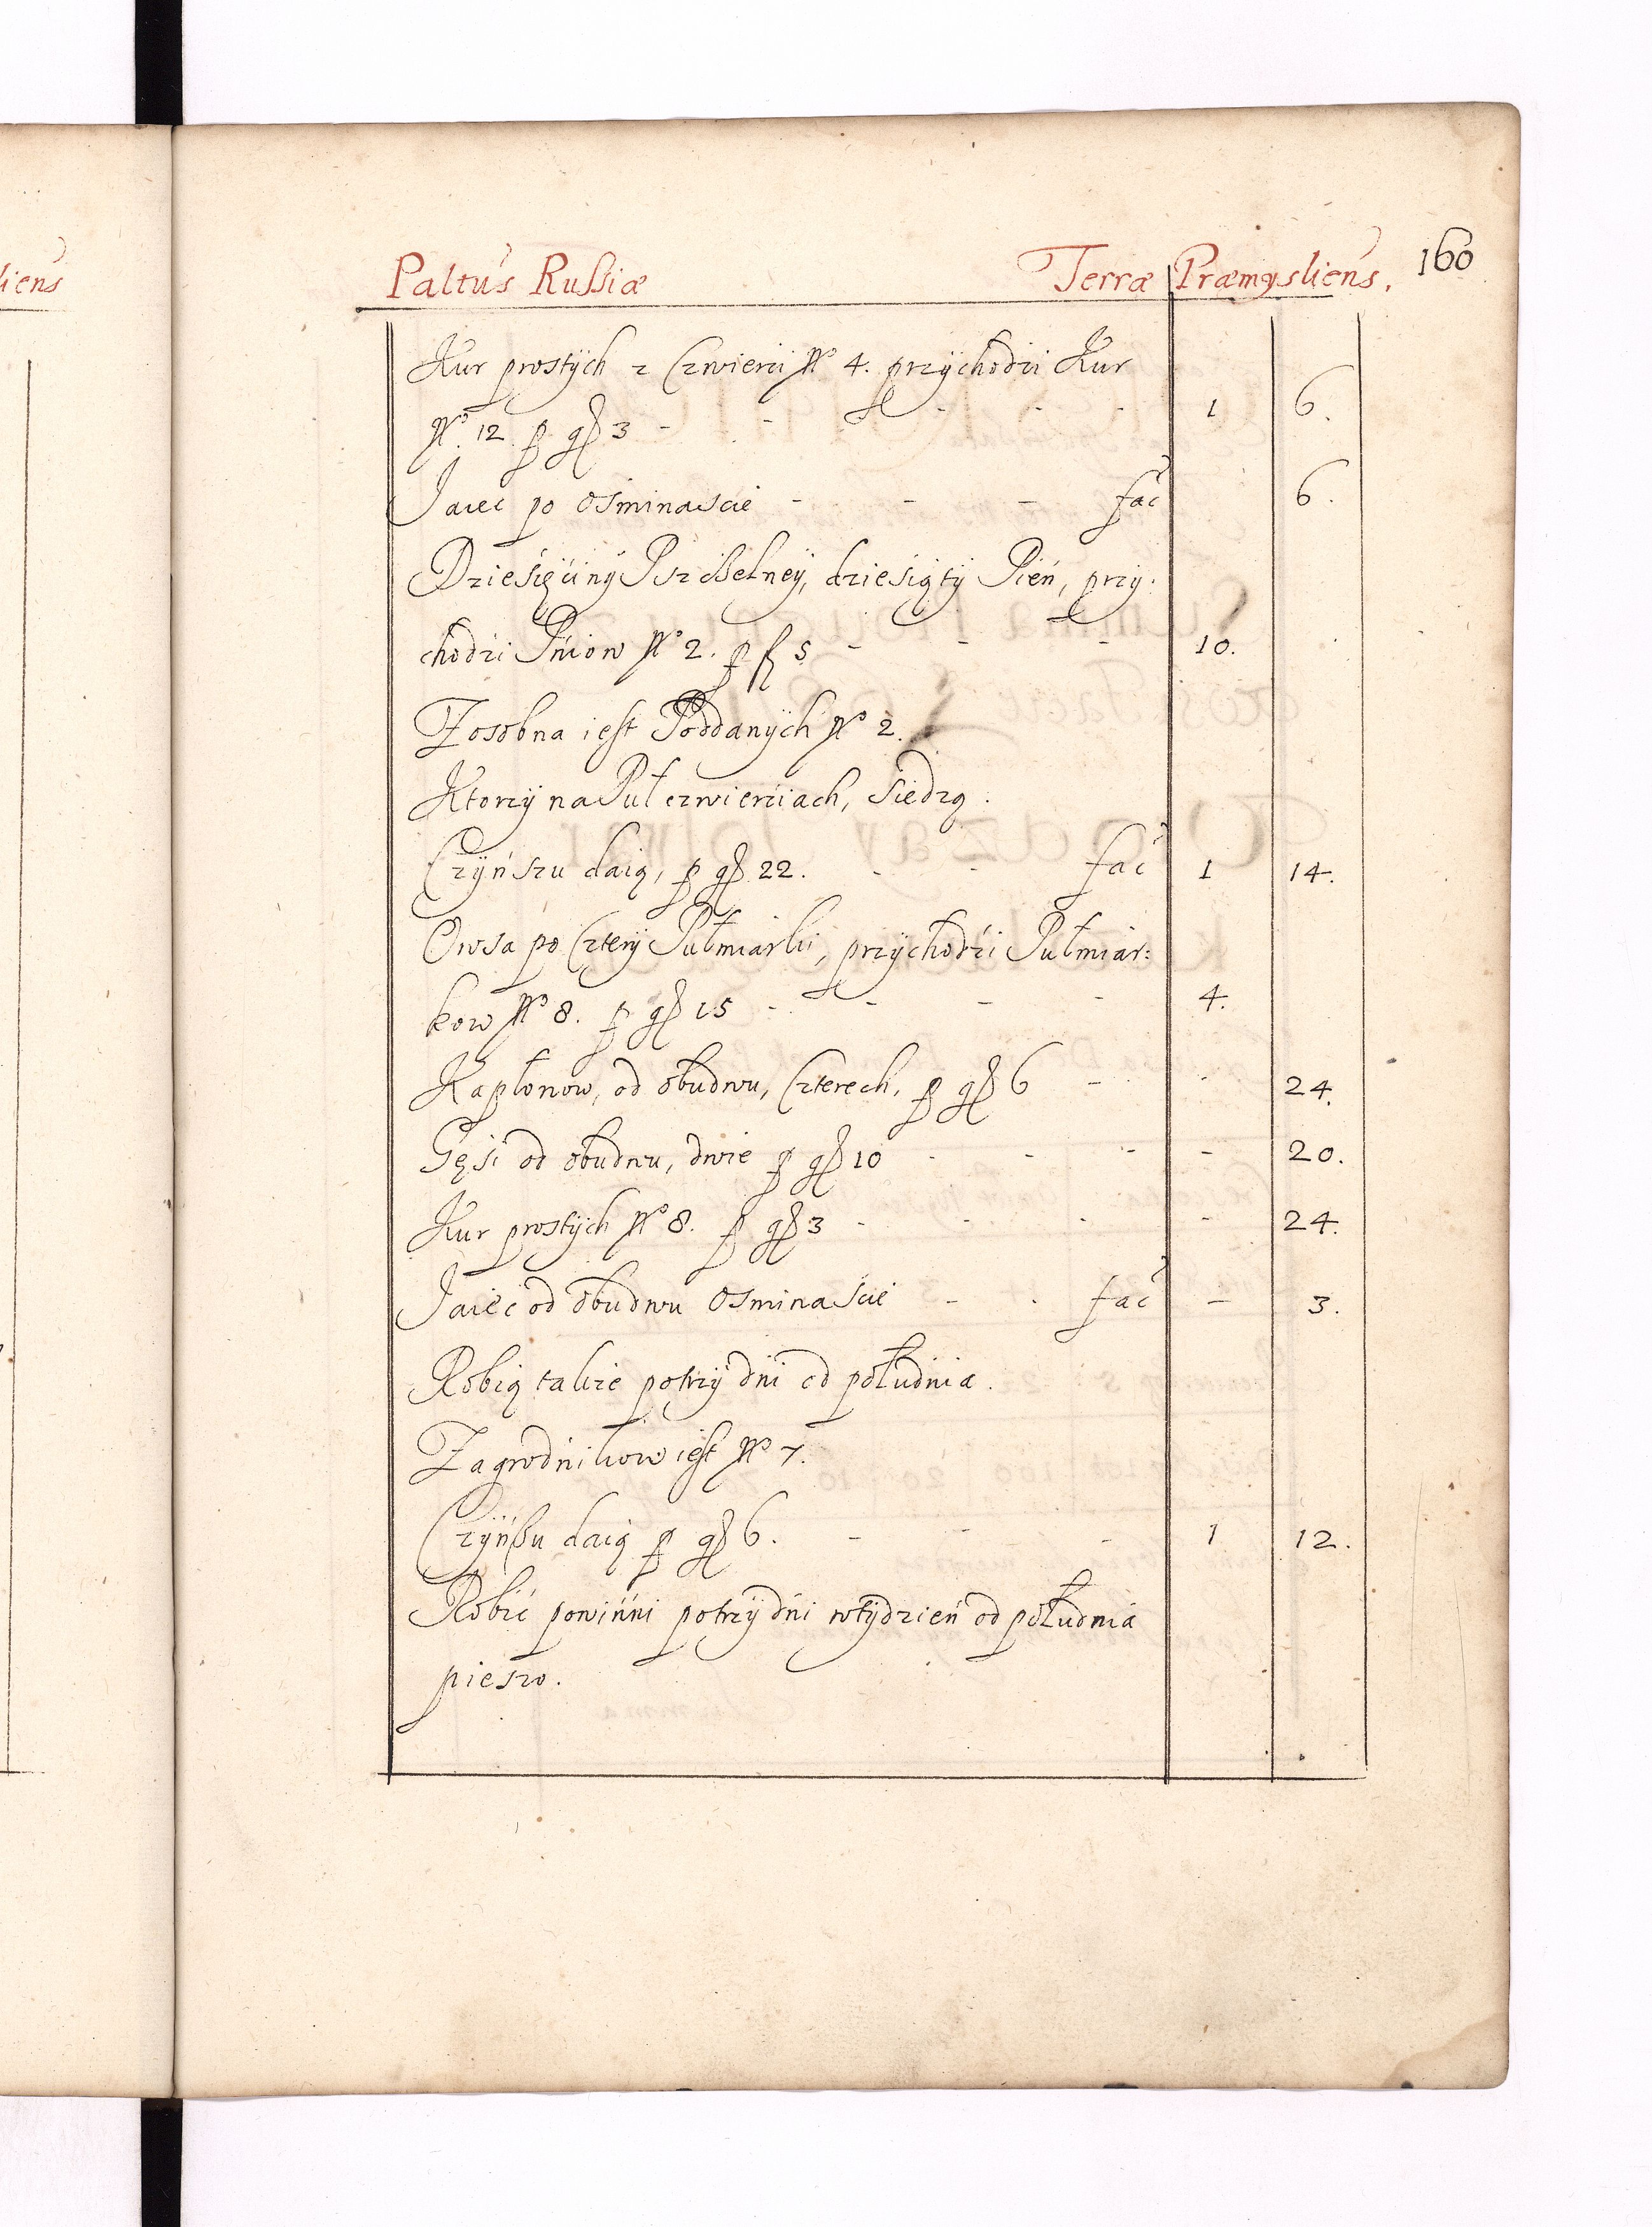 liens
Paltus Russiæ Terræ Præmysliens. 160
Kur prostÿch z Czwierci No 4. przÿchodzi Kur
No. 12 p gß 3 - - - - - 1 6.
Jaiec po osminascie - - - fac 6.
Dziesięcinÿ Pszczelneÿ, dziesiątÿ Pień, przy:
chodzi Pniow No 2. p fl 5 - - - 10.
Zosobna iest Poddanÿch No 2.
Ktorzÿ na Puł czwierciach, siedzą.
Czÿńszu daią, p gß 22. - - fac 1 14.
Owsa po Czterÿ Pułmiarki, przÿchodzi Pułmiar:
kow No 8. p gß 15 - - - - 4.
Kapłonow, od obudwu, Czterech, p gß 6 - - 24.
Gęsi od obudwu, dwie p gß 10 - - - - 20.
Kur prostÿch No 8. p gß 3 - - - - 24.
Jaiec od obudwu osminascie - - fac - 3.
Robią takze potrzÿ dni od południa.
Zagrodnikow iest No 7.
Czÿńßu daią p gß 6. - - - 1 12.
Robić powinni potrzÿ dni wtÿdzień od południa
pieszo.